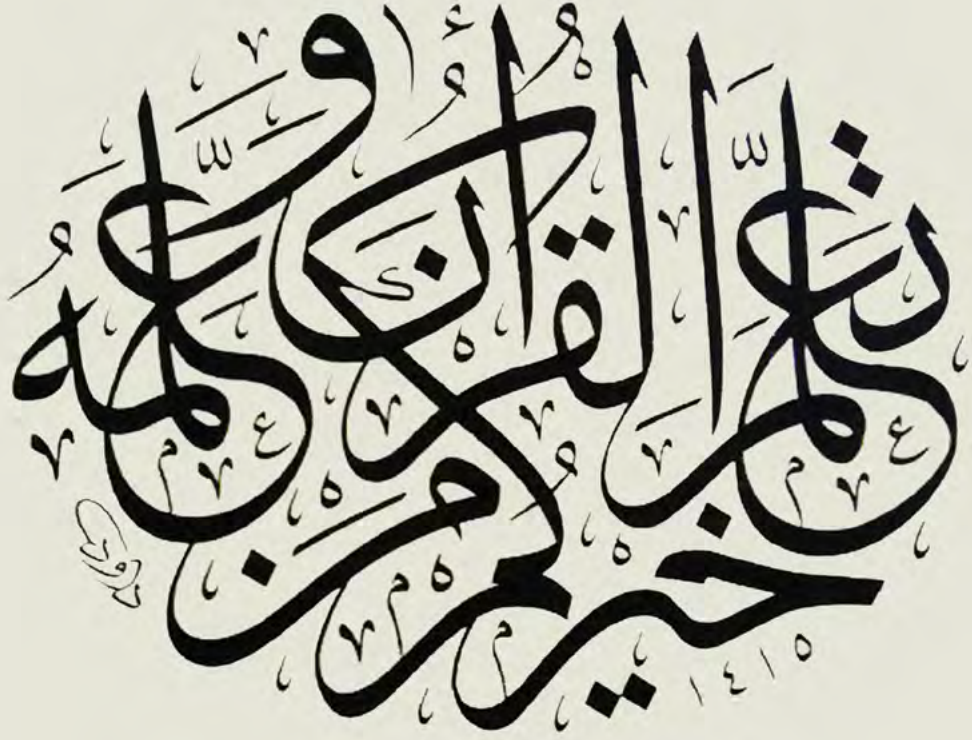 خَيْرُكُمْ مَنْ تَعَلَّمَ الْقُرْآنَ وَعَلَّمَهُ
١٤١٥